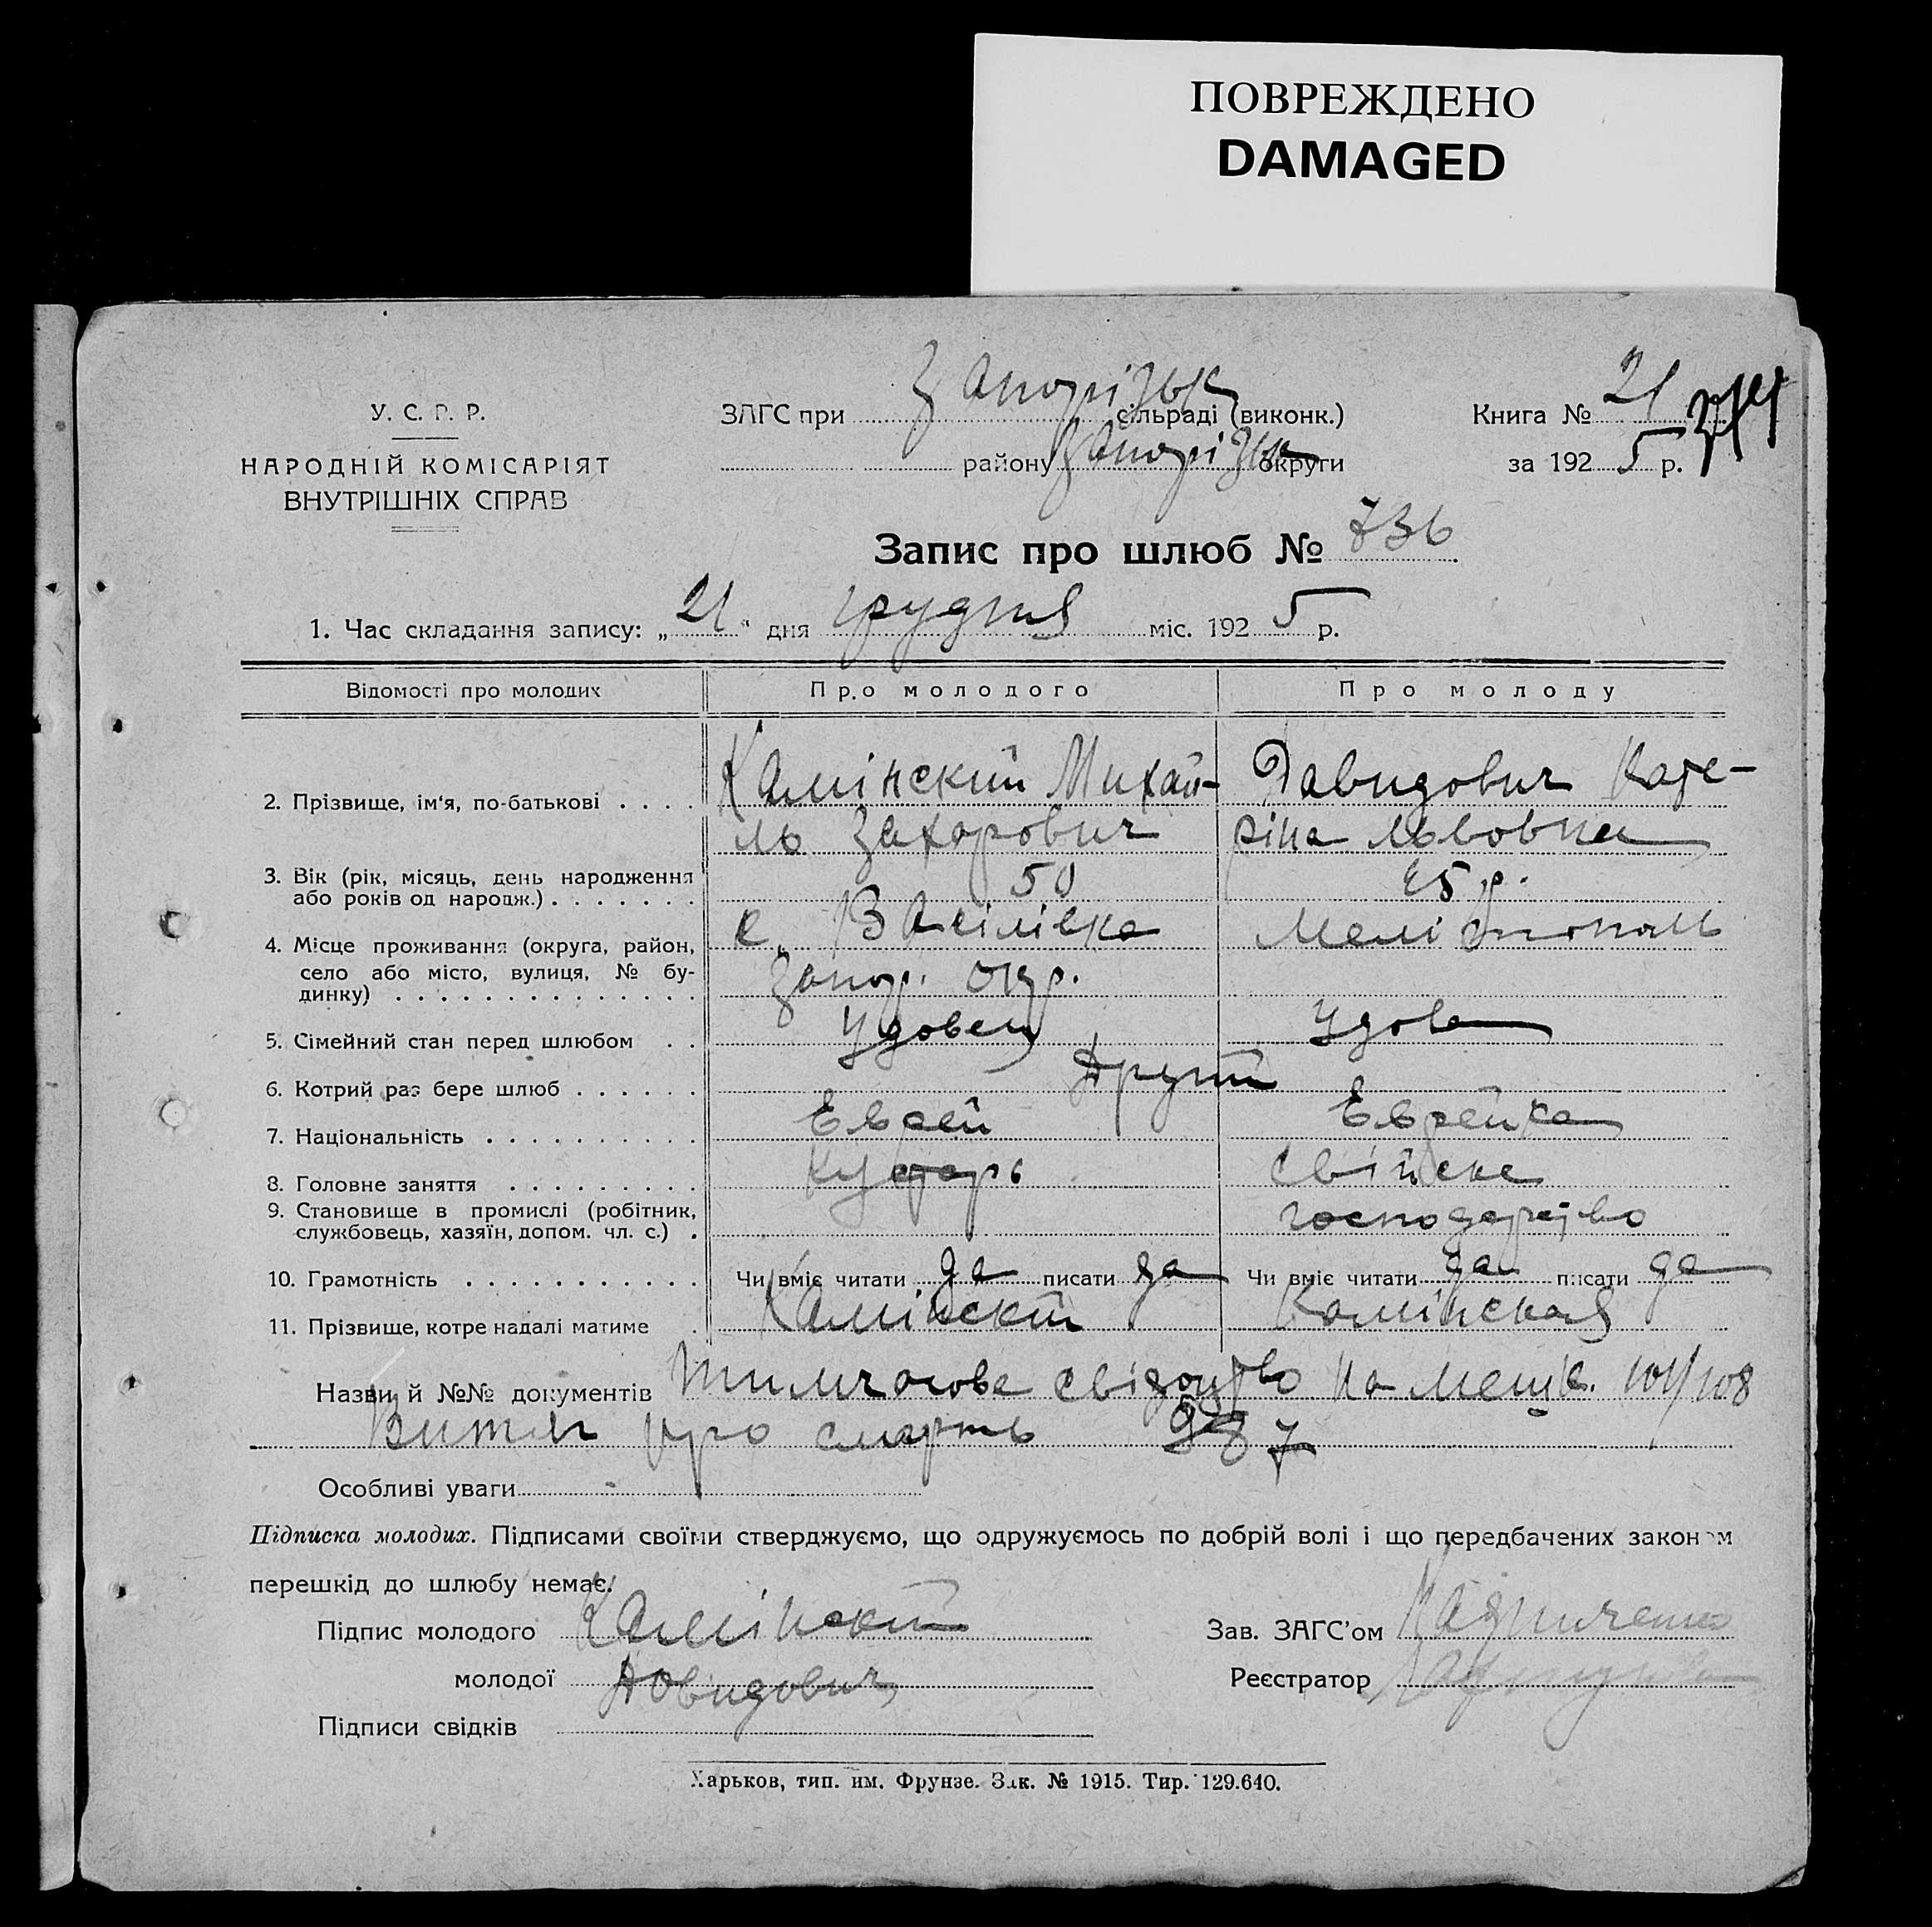 ПОВРЕЖДЕНО
DAMAGED
У. С. Р. Р.
НАРОДНІЙ КОМІСАРІЯТ
ВНУТРІШНІХ СПРАВ
ЗАГС при Запорізьк сільраді (виконк.)
району Запорізьк округи
Книга № 21
за 1925 р.
Запис про шлюб № 736
1. Час складання запису: „21“ дня грудня міс. 1925 р.
Відомості про молодих Про молодого Про молоду
2. Прізвище, ім‘я, по-батькові . . . . Камінский Михай- Давидович Кате-
ль Захарович ріна Львовна
3. Вік (рік, місяць, день народження 50 45 р.
або років од народж.) . . . . . . .
4. Місце проживання (округа, район, с. Васілівка Мелітополь
село або місто, вулиця, № бу- Запор. окр.
динку) . . . . . . . . . . . . . .
5. Сімейний стан перед шлюбом . . Удовец Удова
6. Котрий раз бере шлюб . . . . . . Другий
7. Національність . . . . . . . . . . Еврей Еврейка
8. Головне заняття . . . . . . . . . Свійске
9. Становище в промислі (робітник, господарство
службовець, хазяїн, допом. чл. с.) .
10. Грамотність . . . . . . . . . . . Чи вміє читати да писати да Чи вміє читати да писати да
11. Прізвище, котре надалі матиме . Камінский Камінская
Назви й №№ документів Тимчасове свідоцтво на мешк. 101/108
Витяг про смерть 987
Особливі уваги
Підписка молодих. Підписами своїми стверджуємо, що одружуємось по добрій волі і що передбачених законом
перешкід до шлюбу немає.
Підпис молодого Камінский Зав. ЗАГС’ом
молодої Довидович Реєстратор
Підписи свідків
Харьков, тип. им. Фрунзе. Зак. № 1915. Тир. 129.640.